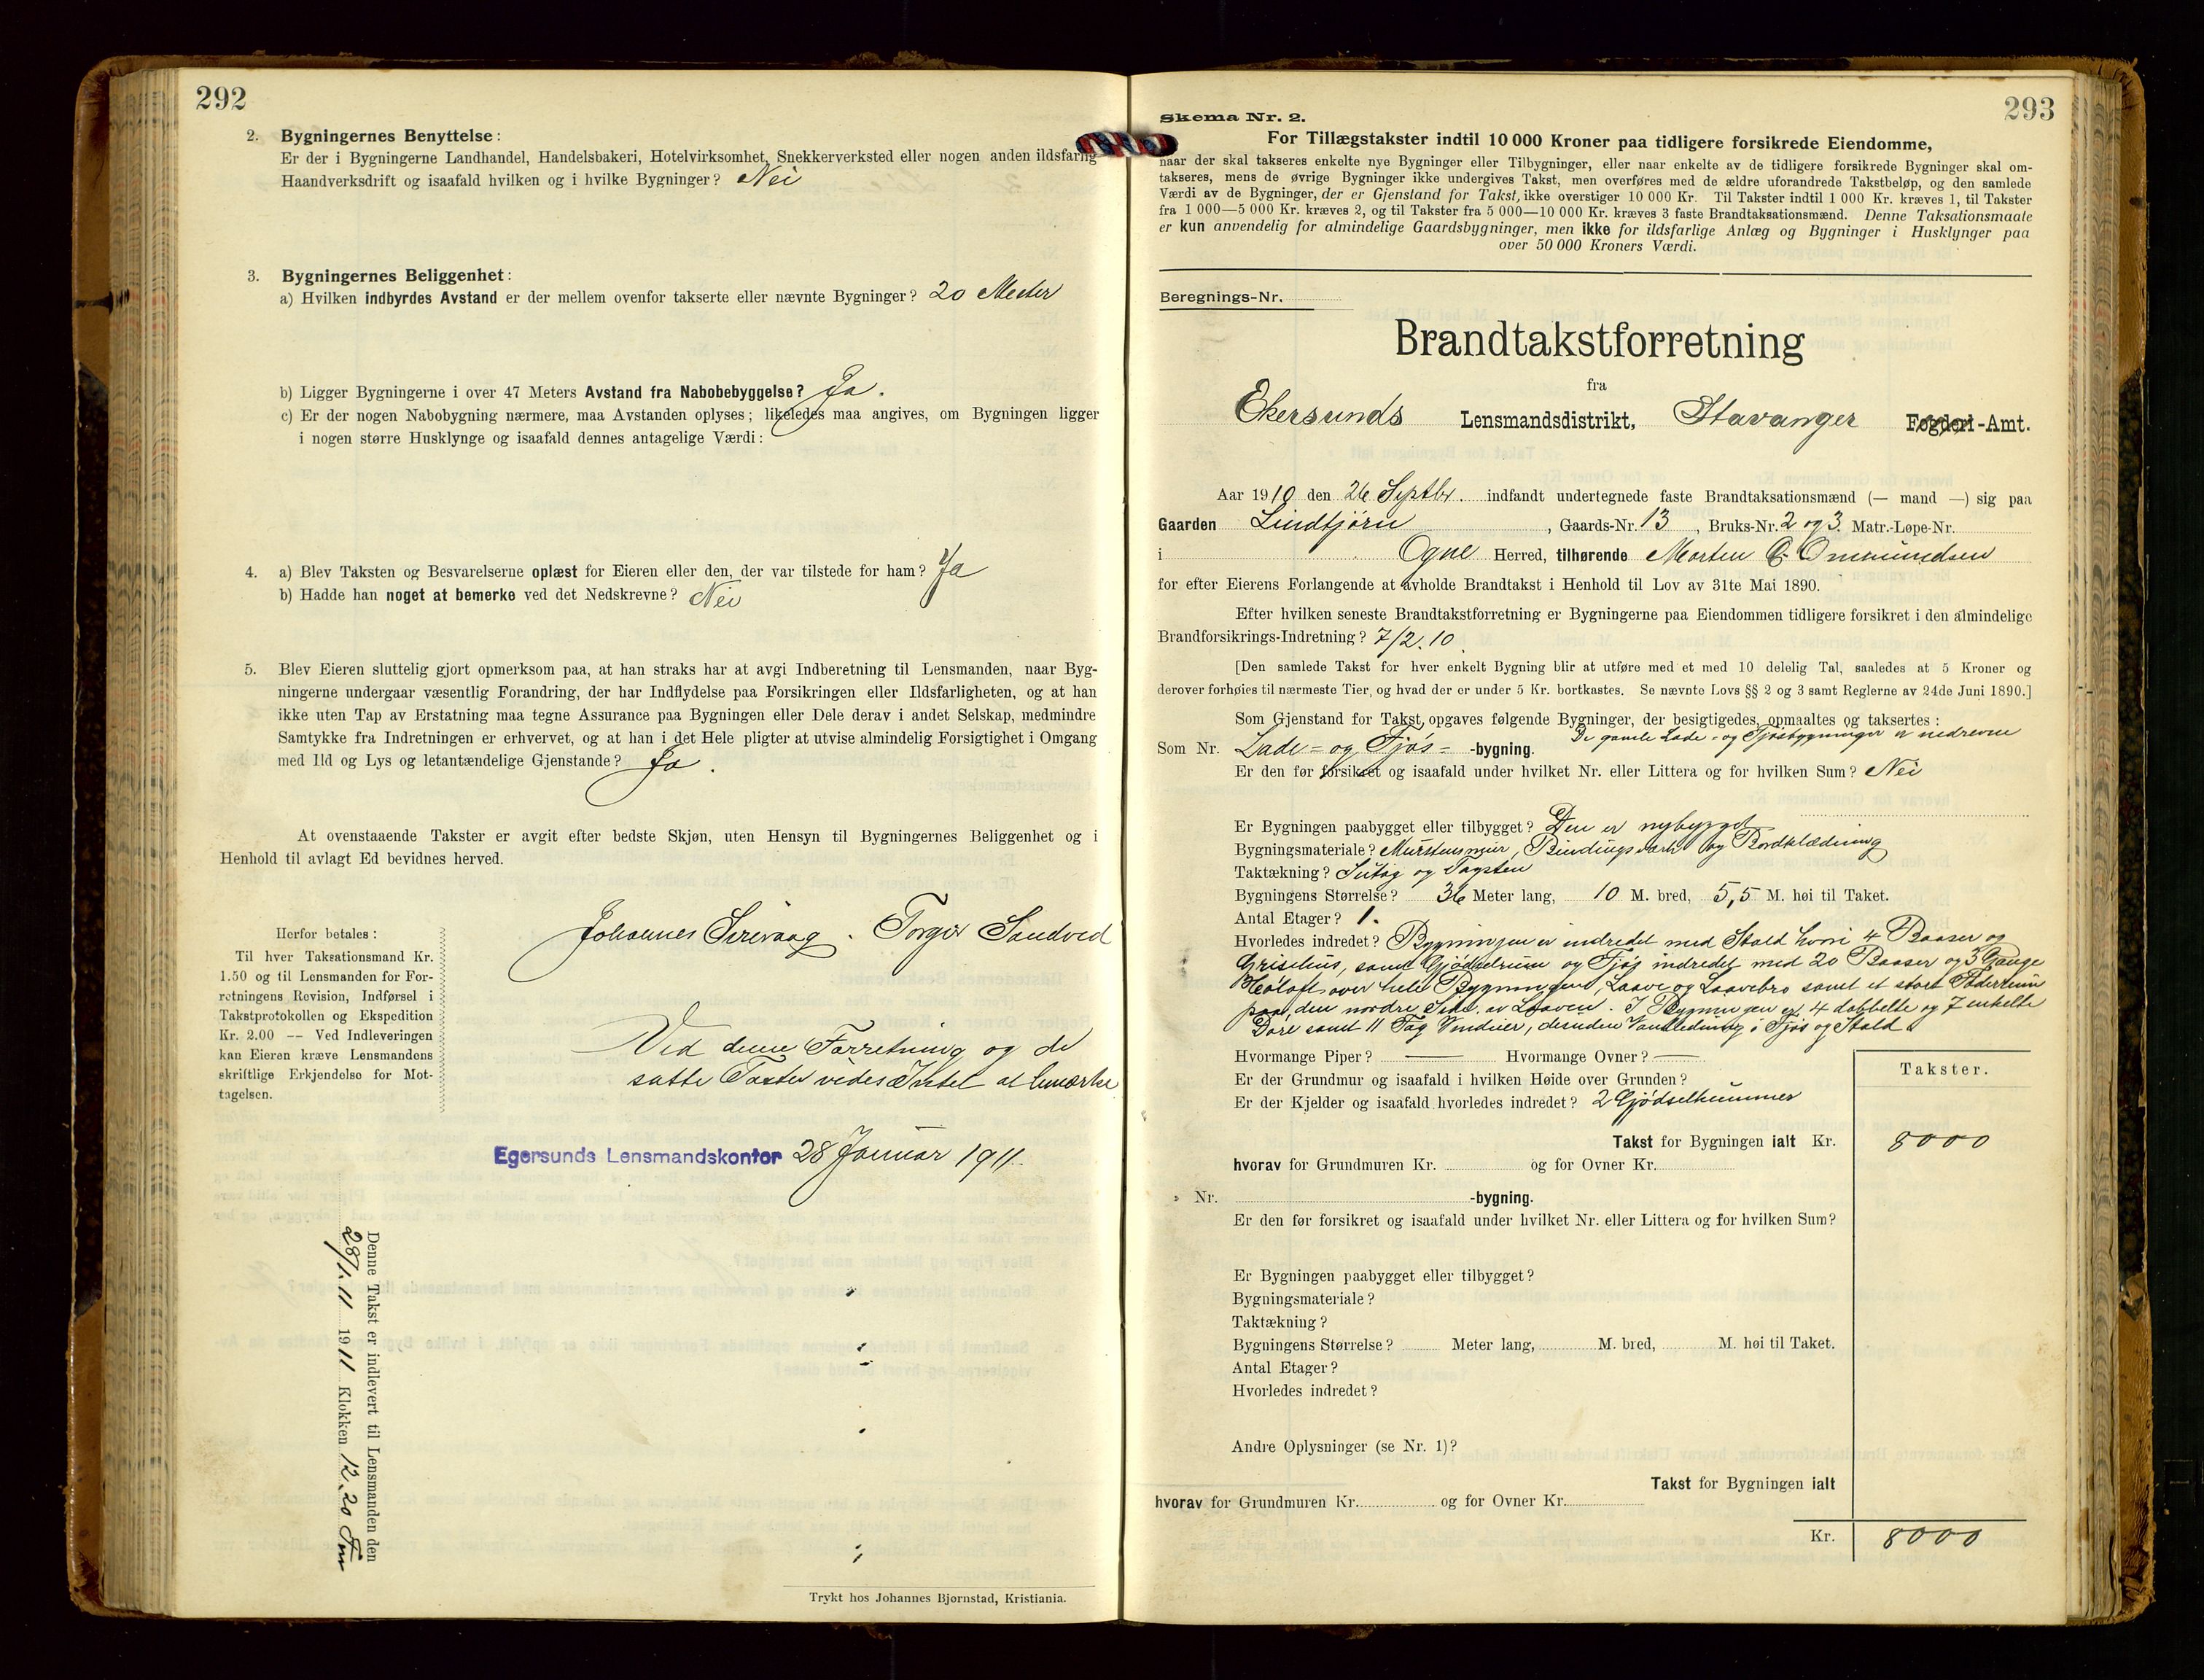 292
2. Bygningernes Benyttelse:
Er der i Bygningerne Landhandel, Handelsbakeri, Hotelvirksomhet, Snekkerverksted eller nogen anden ildsfarlig
Haandverksdrift og isaafald hvilken og i hvilke Bygninger? Nei
3. Bygningernes Beliggenhet:
a) Hvilken indbyrdes Avstand er der mellem ovenfor takserte eller nævnte Bygninger? 20 Meter
b) Ligger Bygningerne i over 47 Meters Avstand fra Nabobebyggelse? Ja.
c) Er der nogen Nabobygning nærmere, maa Avstanden oplyses; likeledes maa angives, om Bygningen ligger
i nogen større Husklynge og isaafald dennes antagelige Værdi:
4. a) Blev Taksten og Besvarelserne oplæst for Eieren eller den, der var tilstede for ham? Ja
b) Hadde han noget at bemerke ved det Nedskrevne? Nei
5. Blev Eieren sluttelig gjort opmerksom paa, at han straks har at avgi Indberetning til Lensmanden, naar Byg-
ningerne undergaar væsentlig Forandring, der har Indflydelse paa Forsikringen eller Ildsfarligheten, og at han
ikke uten Tap av Erstatning maa tegne Assurance paa Bygningen eller Dele derav i andet Selskap, medmindre
Samtykke fra Indretningen er erhvervet, og at han i det Hele pligter at utvise almindelig Forsigtighet i Omgang
med Ild og Lys og letantændelige Gjenstande? Ja.
At ovenstaaende Takster er avgit efter bedste Skjøn, uten Hensyn til Bygningernes Beliggenhet og i
Henhold til avlagt Ed bevidnes herved.
Johannes Sirevaag. Torger Sandved
Herfor betales:
Til hver Taksationsmand Kr.
1.50 og til Lensmanden for For-
retningens Revision, Indførsel i
Takstprotokollen og Ekspedition
Kr. 2.00 -- Ved Indleveringen
kan Eieren kræve Lensmandens
skriftlige Erkjendelse for Mot-
tagelsen.
Ved denne Forretning og de
satte Taxter vides Intet at bemærke
Egersunds Lensmandskontor 28 Januar 1911.
Denne Takst er indlevert til Lensmanden den
28/1.11 1911 Klokken 12.20 Fm
Trykt hos Johannes Bjørnstad, Kristiania.
293
Skema Nr. 2.
For Tillægstakster indtil 10 000 Kroner paa tidligere forsikrede Eiendomme,
naar der skal takseres enkelte nye Bygninger eller Tilbygninger, eller naar enkelte av de tidligere forsikrede Bygninger skal om-
takseres, mens de øvrige Bygninger ikke undergives Takst, men overføres med de ældre uforandrede Takstbeløp, og den samlede
Værdi av de Bygninger, der er Gjenstand for Takst, ikke overstiger 10 000 Kr. Til Takster indtil 1 000 Kr. kræves 1, til Takster
fra 1 000—5 000 Kr. kræves 2, og til Takster fra 5 000—10 000 Kr. kræves 3 faste Brandtaksationsmænd. Denne Taksationsmaate
er kun anvendelig for almindelige Gaardsbygninger, men ikke for ildsfarlige Anlæg og Bygninger i Husklynger paa
over 50 000 Kroners Værdi.
Beregnings-Nr.
Brandtakstforretning
fra
Ekersunds Lensmandsdistrikt, Stavanger Fogderi-Amt.
Aar 1910 den 26 Septbr. indfandt undertegnede faste Brandtaksationsmænd (— mand —) sig paa
Gaarden Lindtjørn, Gaards-Nr. 13, Bruks-Nr. 2 og 3. Matr.-Løpe-Nr.
i Ogne Herred, tilhørende Morten C. Ommundsen
for efter Eierens Forlangende at avholde Brandtakst i Henhold til Lov av 31te Mai 1890.
Efter hvilken seneste Brandtakstforretning er Bygningerne paa Eiendommen tidligere forsikret i den almindelige
Brandforsikrings-Indretning? 7/2.10.
[Den samlede Takst for hver enkelt Bygning blir at utføre med et med 10 delelig Tal, saaledes at 5 Kroner og
derover forhøies til nærmeste Tier, og hvad der er under 5 Kr. bortkastes. Se nævnte Lovs §§ 2 og 3 samt Reglerne av 24de Juni 1890.]
Som Gjenstand for Takst opgaves følgende Bygninger, der besigtigedes, opmaaltes og taksertes:
De gamle Lade- og Fjøsbygninger er nedrevne
Som Nr. Lade- og Fjøs- -bygning.
Er den før forsikret og isaafald under hvilket Nr. eller Littera og for hvilken Sum? Nei
Er Bygningen paabygget eller tilbygget? Den er nybygget
Bygningsmateriale? Murstensmur, Bindingsværk og Bordklædning
Taktækning? Sutag og Tagsten
Bygningens Størrelse? 36 Meter lang, 10 M. bred, 5,5 M. høi til Taket.
Antal Etager? 1.
Hvorledes indredet? Bygningen er indredet med Stald hvori 4 Baaser og
Grisehus, samt Gjødselrum og Fjøs indredet med 20 Baaser og 3 Gange
Høloft over hele Bygningen, Laave og Laavebro samt et stort Foderrum
paa den nordre Side av Laaven. I Bygningen er 4 dobbelte og 7 enkelte
Døre samt 11 Fag Vinduer, desuden Vandledning i Fjøs og Stald.
Hvormange Piper? — Hvormange Ovner? —
Takster.
Er der Grundmur og isaafald i hvilken Høide over Grunden?
Er der Kjelder og isaafald hvorledes indredet? 2 Gjødselkummer
Takst for Bygningen ialt Kr. 8000
hvorav for Grundmuren Kr. og for Ovner Kr.
» Nr. -bygning.
Er den før forsikret og isaafald under hvilket Nr. eller Littera og for hvilken Sum?
Er Bygningen paabygget eller tilbygget?
Bygningsmateriale?
Taktækning?
Bygningens Størrelse? Meter lang, M. bred, M. høi til Taket.
Antal Etager?
Hvorledes indredet?
Andre Oplysninger (se Nr. 1)?
Takst for Bygningen ialt
hvorav for Grundmuren Kr. og for Ovner Kr.
Kr. 8000